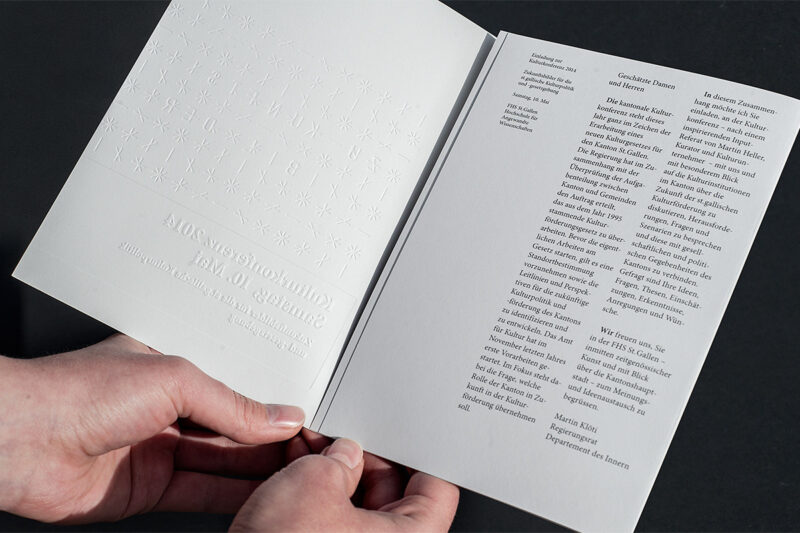 Kulturkonferenz 2014
Samstag, 10. Mai
Zukunftsbilder für die st.gallische Kulturpolitik
und -gesetzgebung
Einladung zur
Kulturkonferenz 2014
Zukunftsbilder für die
st.gallische Kulturpolitik
und -gesetzgebung
Samstag, 10. Mai
FHS St.Gallen
Hochschule für
Angewandte
Wissenschaften
Geschätzte Damen
und Herren
Die kantonale Kultur-
konferenz steht dieses
Jahr ganz im Zeichen der
Erarbeitung eines
neuen Kulturgesetzes für
den Kanton St.Gallen.
Die Regierung hat im Zu-
sammenhang mit der
Überprüfung der Aufga-
benteilung zwischen
Kanton und Gemeinden
den Auftrag erteilt,
das aus dem Jahr 1995
stammende Kultur-
förderungsgesetz zu über-
arbeiten. Bevor die eigent-
lichen Arbeiten am
Gesetz starten, gilt es eine
Standortbestimmung
vorzunehmen sowie die
Leitlinien und Perspek-
tiven für die zukünftige
Kulturpolitik und
-förderung des Kantons
zu identifizieren und
zu entwickeln. Das Amt
für Kultur hat im
November letzten Jahres
erste Vorarbeiten ge-
startet. Im Fokus steht da-
bei die Frage, welche
Rolle der Kanton in Zu-
kunft in der Kultur-
förderung übernehmen
soll.
In diesem Zusammen-
hang möchte ich Sie
einladen, an der Kultur-
konferenz – nach einem
inspirierenden Input-
Referat von Martin Heller,
Kurator und Kulturun-
ternehmer – mit uns und
mit besonderem Blick
auf die Kulturinstitutionen
im Kanton über die
Zukunft der st.gallischen
Kulturförderung zu
diskutieren, Herausforde-
rungen, Fragen und
Szenarien zu besprechen
und diese mit gesell-
schaftlichen und politi-
schen Gegebenheiten des
Kantons zu verbinden.
Gefragt sind Ihre Ideen,
Fragen, Thesen, Einschät-
zungen, Erkenntnisse,
Anregungen und Wün-
sche.
Wir freuen uns, Sie
in der FHS St.Gallen –
inmitten zeitgenössischer
Kunst und mit Blick
über die Kantonshaupt-
stadt – zum Meinungs-
und Ideenaustausch zu
begrüssen.
Martin Klöti
Regierungsrat
Departement des Innern